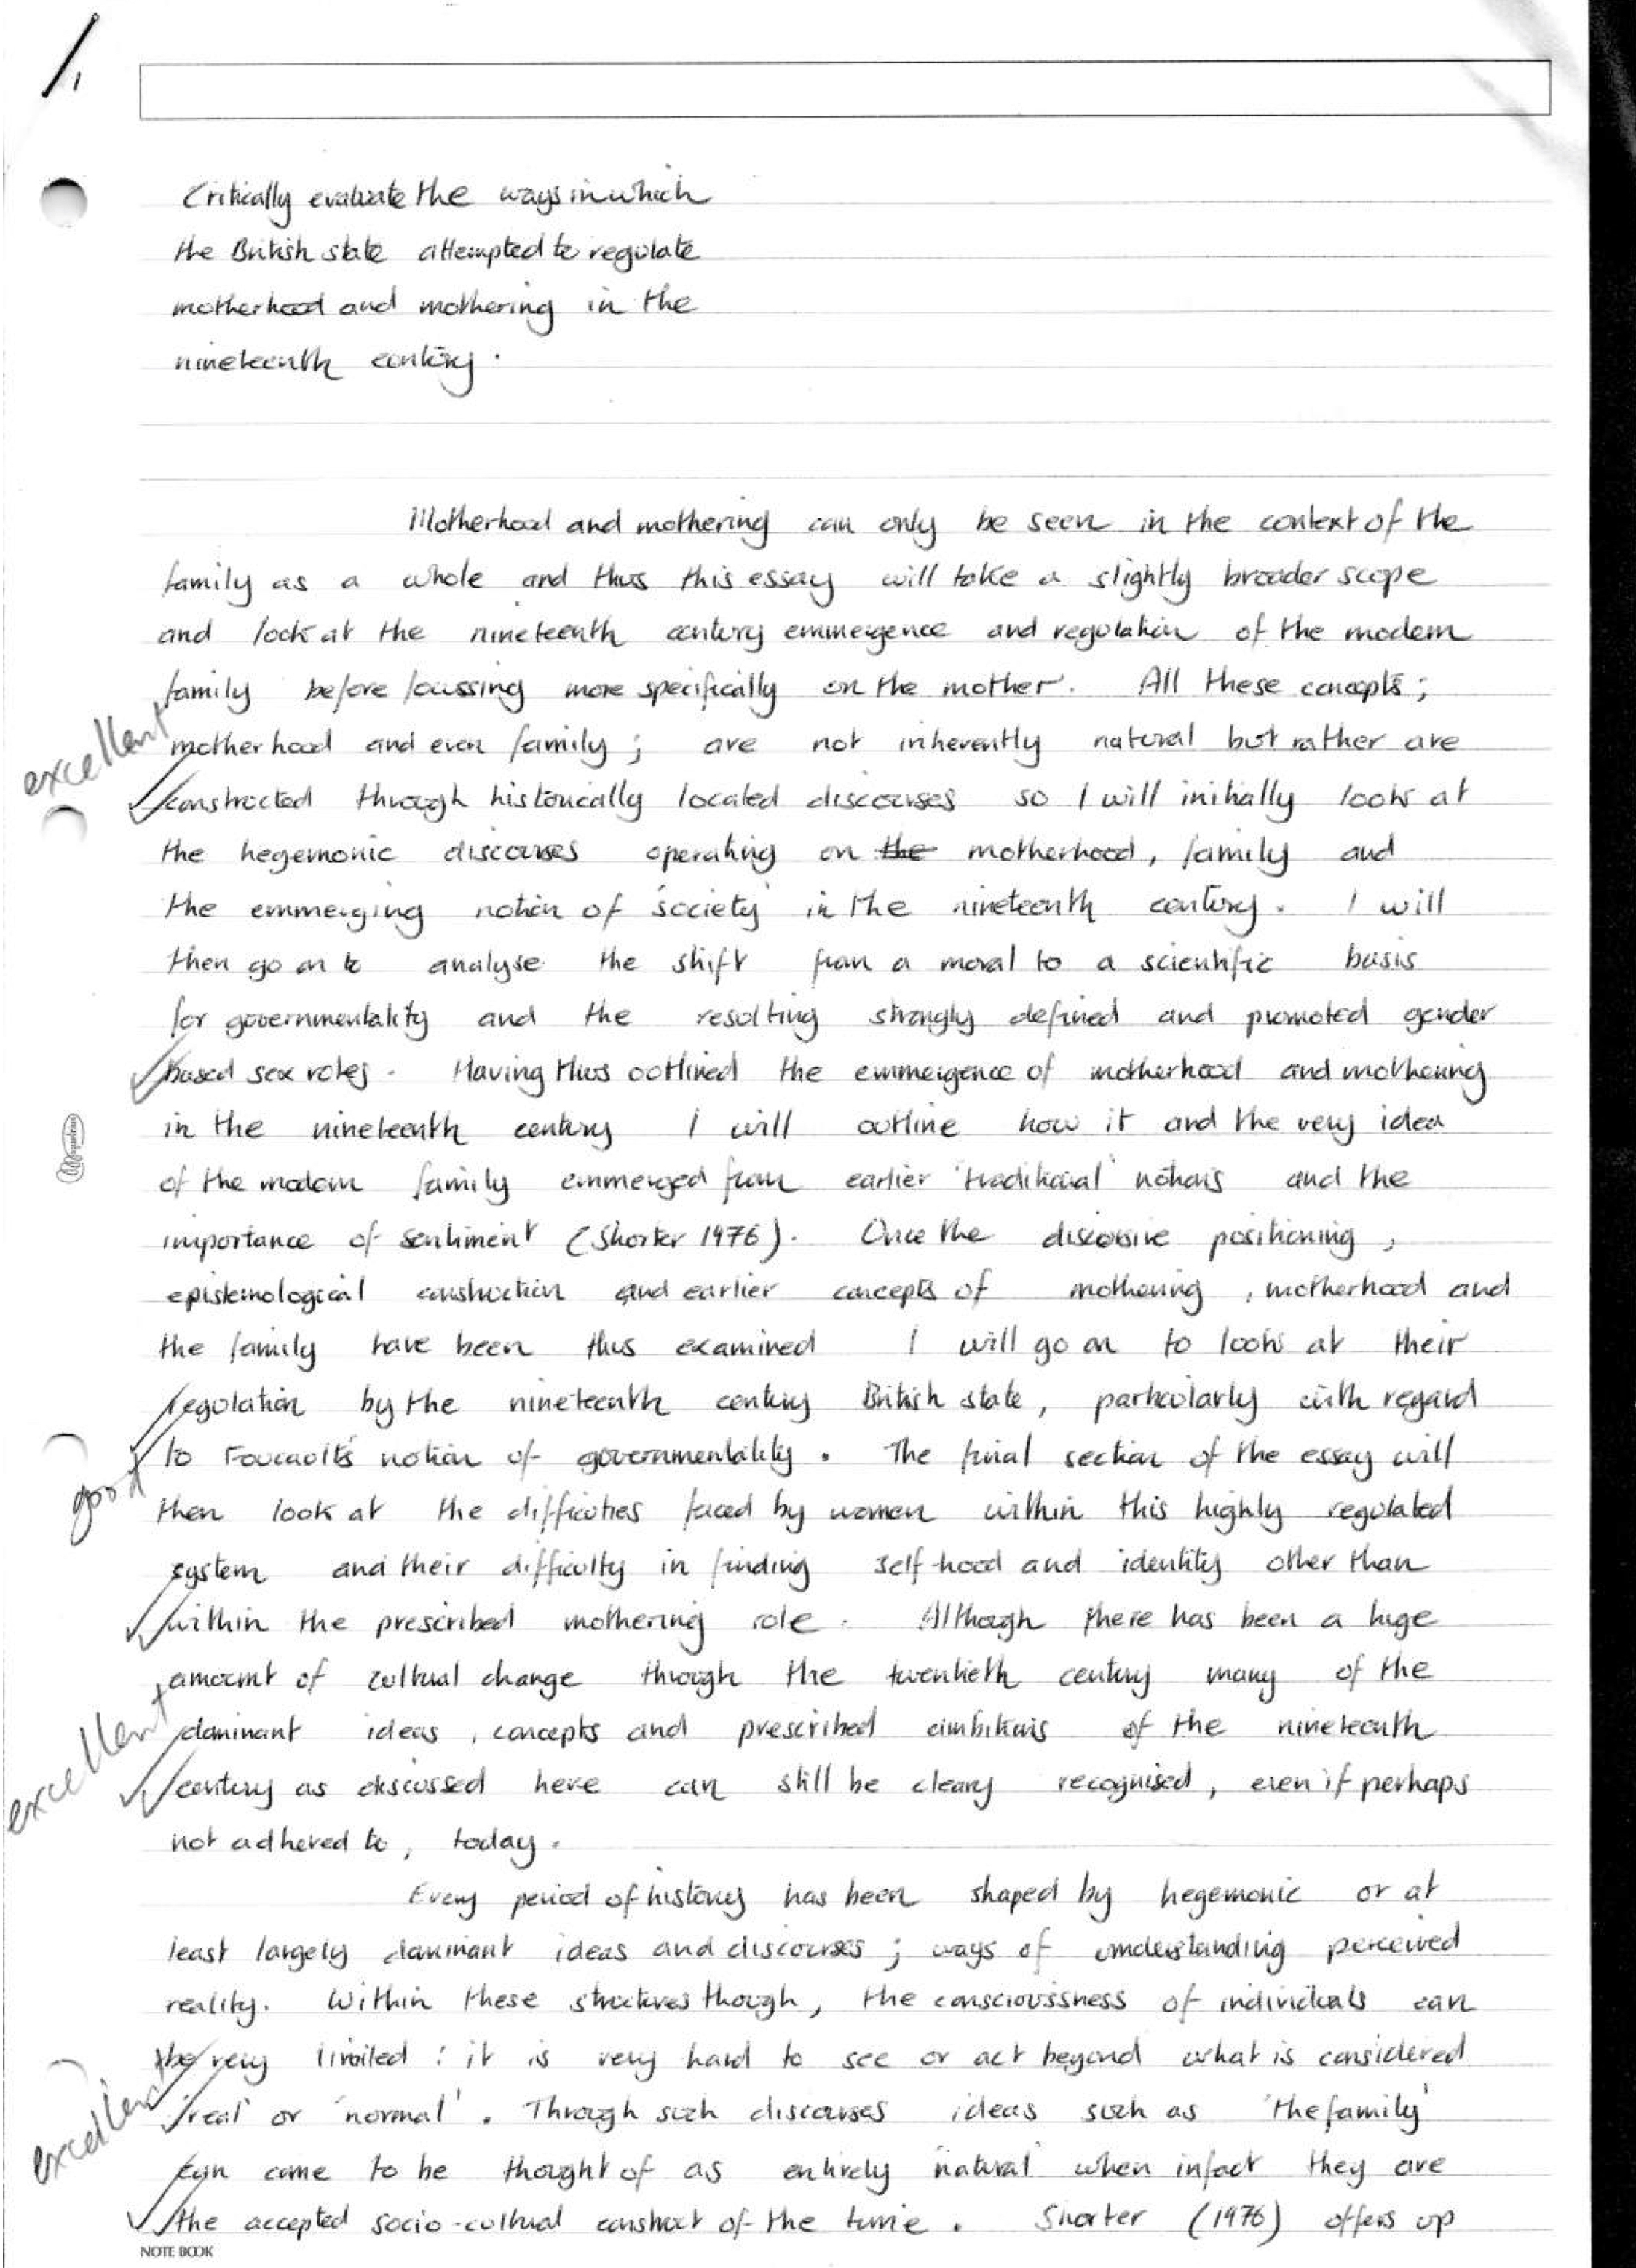 1.
Critically evaluate the ways in which
the British state attempted to regulate
motherhood and mothering in the
nineteenth century.
Motherhood and mothering can only be seen in the context of the
family as a whole and thus this essay will take a slightly broader scope
and look at the nineteenth century emmergence and regulation of the modern
family before focussing more specifically on the mother. All these concepts;
excellent
motherhood and even family; are not inherently natural but rather are
constructed through historically located discourses so I will initially look at
the hegemonic discourses operating on the motherhood, family and
the emmerging notion of 'society' in the nineteenth century. I will
then go on to analyse the shift from a moral to a scientific basis
for governmentality and the resulting strongly defined and promoted gender
based sex roles. Having thus outlined the emmergence of motherhood and mothering
in the nineteenth century I will outline how it and the very idea
of the modern family emmerged from earlier 'traditional' notions and the
importance of sentiment (Shorter 1976). Once the discoursive positioning,
epistemological construction and earlier concepts of mothering, motherhood and
the family have been thus examined I will go on to look at their
regulation by the nineteenth century British state, particularly with regard
to Foucault's notion of governmentality. The final section of the essay will
good
then look at the difficulties faced by women within this highly regulated
system and their difficulty in finding self-hood and identity other than
within the prescribed mothering role. Although there has been a huge
amount of cultural change through the twentieth century many of the
excellent
dominant ideas, concepts and prescribed ambitions of the nineteenth
century as discussed here can still be cleary recognised, even if perhaps
not adhered to, today.
Every period of history has been shaped by hegemonic or at
least largely dominant ideas and discourses; ways of understanding perceived
reality. Within these structures though, the consciousness of individuals can
be very limited: it is very hard to see or act beyond what is considered
excellent
'real' or 'normal'. Through such discourses ideas such as 'the family'
can come to be thought of as entirely 'natural' when infact they are
the accepted socio-cultural construct of the time. Shorter (1976) offers up
NOTE BOOK